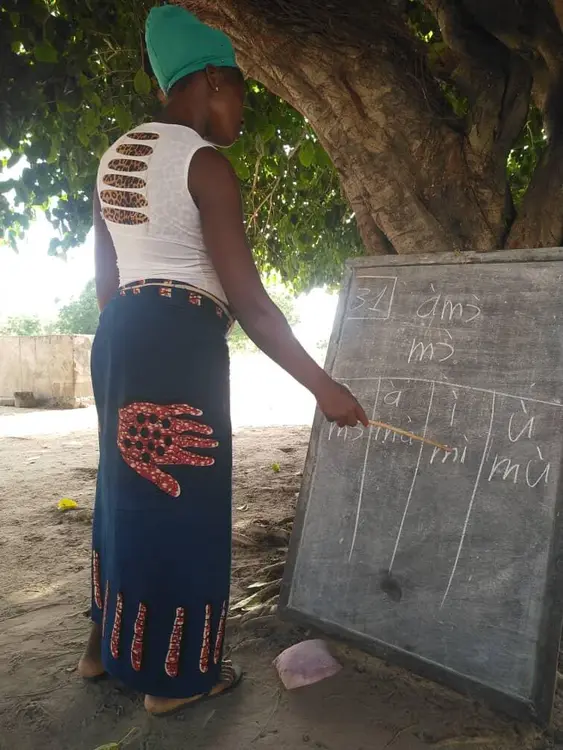 31 àmɔ̀
mɔ̀
à ì ù
mɔ̀ mà mì mù